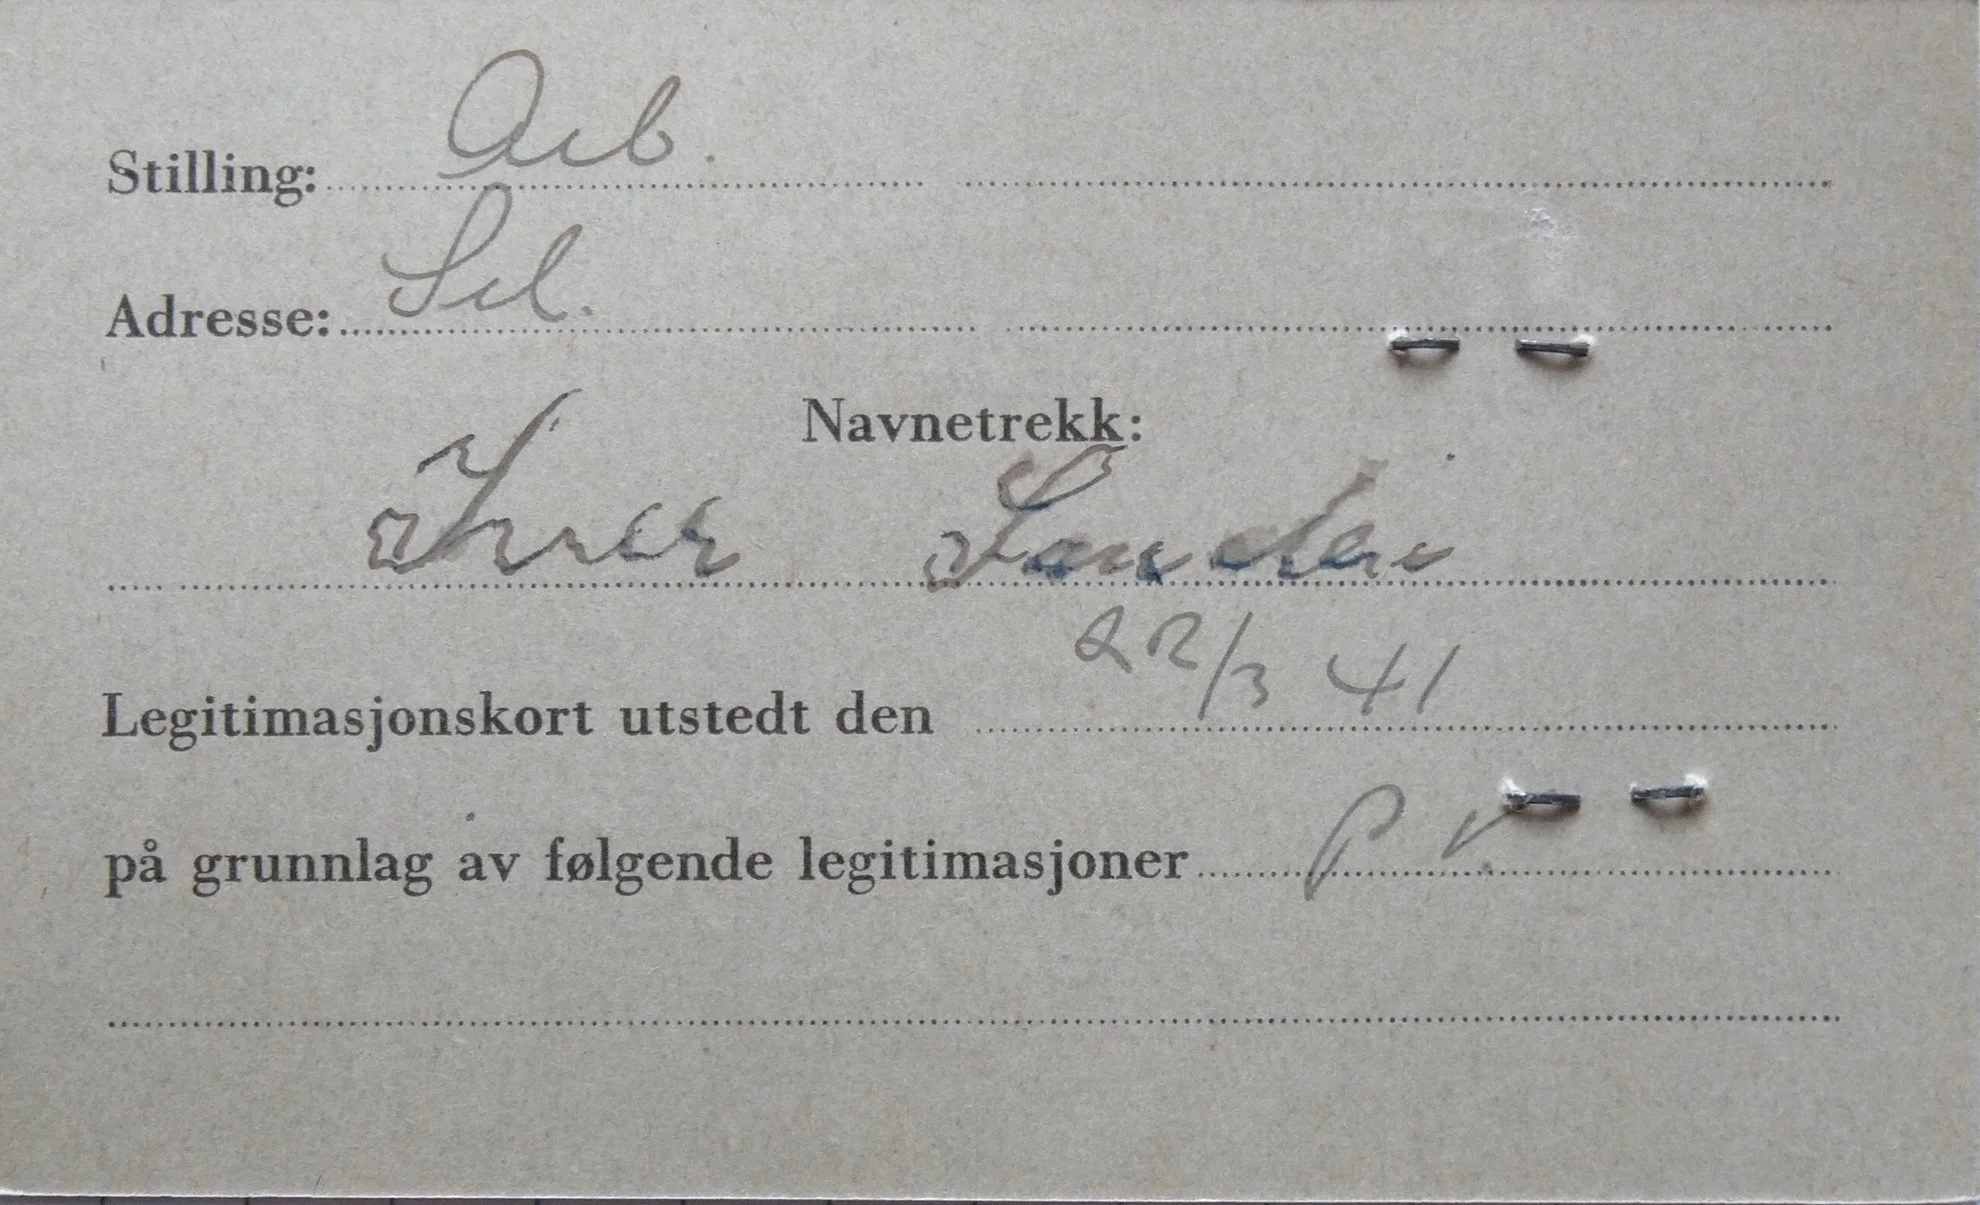 Stilling: Arb.
Adresse: Sel.
Navnetrekk:
Iver
Legitimasjonskort utstedt den 22/3 41
på grunnlag av følgende legitimasjoner P.